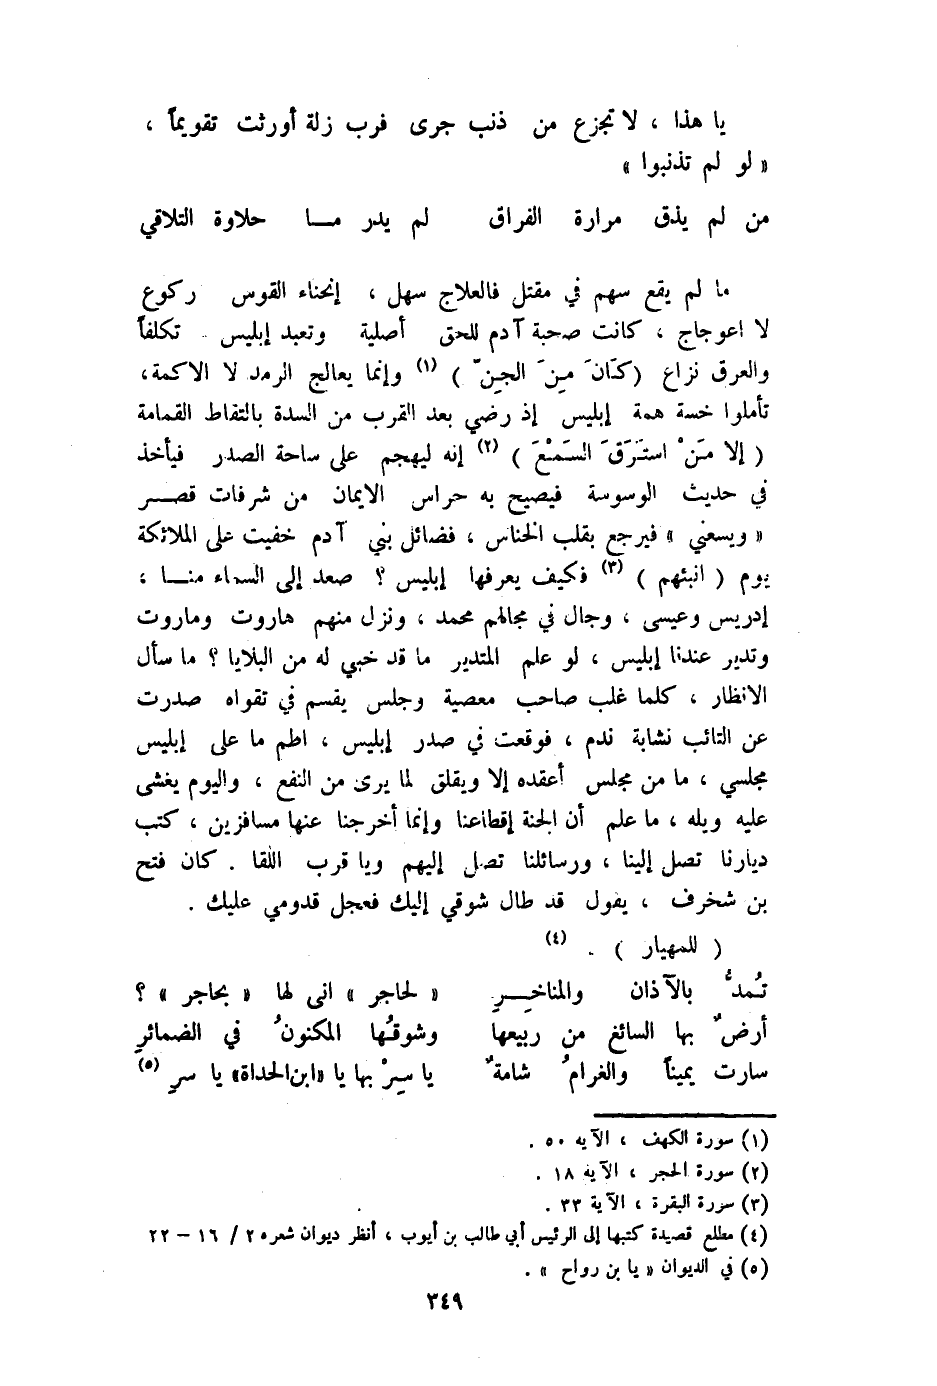 يا هذا ، لا تجزع من ذنب جرى فرب زلة أورثت تقويماً ،
« لو لم تذنبوا »
من لم يذق مرارة الفراق لم يدر مــا حلاوة التلاقي
ما لم يقع سهم في مقتل فالعلاج سهل ، إنحناء القوس ركوع
لا اعوجاج ، كانت صحبة آدم للحق أصلية وتعبد إبليس تكلفاً
والعرق نزاع ( كَانَ مِنَ الجِنّ ) (١) وإنما يعالج الرمد لا الاكمة ،
تأملوا خسة همة إبليس إذ رضي بعد القرب من السدة بالتقاط القمامة
( إلا مَنْ استَرَقَ السَمْعَ ) (٢) إنه ليهجم على ساحة الصدر فيأخذ
في حديث الوسوسة فيصيح به حراس الايمان من شرفات قصــر
« ويسعني » فيرجع بقلب الخناس ، ففضائل بني آدم خفيت على الملائكة
يوم ( انبئهم ) (٣) فكيف يعرفها إبليس ؟ صعد إلى السماء منــا ،
إدريس وعيسى ، وجال في مجالهم محمد ، ونزل منهم هاروت وماروت
وتدير عندنا إبليس ، لو علم المتدير ما قد خبي له من البلايا ؟ ما سأل
الانظار ، كلما غلب صاحب معصية وجلس يقسم في تقواه صدرت
عن التائب نشابة ندم ، فوقعت في صدر إبليس ، اطم ما على إبليس
مجلسي ، ما من مجلس أعقده إلا ويقلق لما يرى من النفع ، واليوم يغشى
عليه ويله ، ما علم أن الجنة إقطاعنا وإنما أخرجنا عنها مسافرين ، كتب
ديارنا تصل إلينا ، ورسائلنا تصل إليهم ويا قرب اللقا . كان فتح
بن شخرف ، يقول قد طال شوقي إليك فعجل قدومي عليك .
( للمهيار ) . (٤)
تُمدُّ بالآذان والمناخِــرِ « لحاجر » انى لها « بحاجر » ؟
أرضٌ بها السائغ من ربيعها وشوقُها المكنونُ في الضمائرِ
سارت يميناً والغرامُ شامةٌ يا سِرْ بها يا «ابن الحداة» يا سرِ (٥)
(١) سورة الكهف ، الآيه ٥٠ .
(٢) سورة الحجر ، الآية ١٨ .
(٣) سورة البقرة ، الآية ٣٣ .
(٤) مطلع قصيدة كتبها إلى الرئيس أبي طالب بن أيوب ، أنظر ديوان شعره ٢ / ١٦ – ٢٢
(٥) في الديوان « يا بن رواح » .
٣٤٩